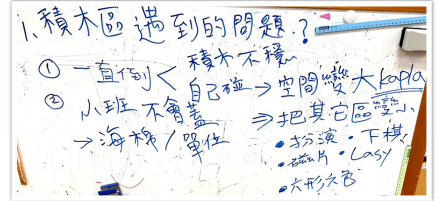 1. 積木區遇到的問題？
① 一直倒 < 積木不穩
自己碰 → 空間變大 kapla
② 小班不會蓋
→ 海棉/單位
⇒ 把其它區變小
• 扮演 • 下棋
• 磁片 • Lasy
• 六形六色